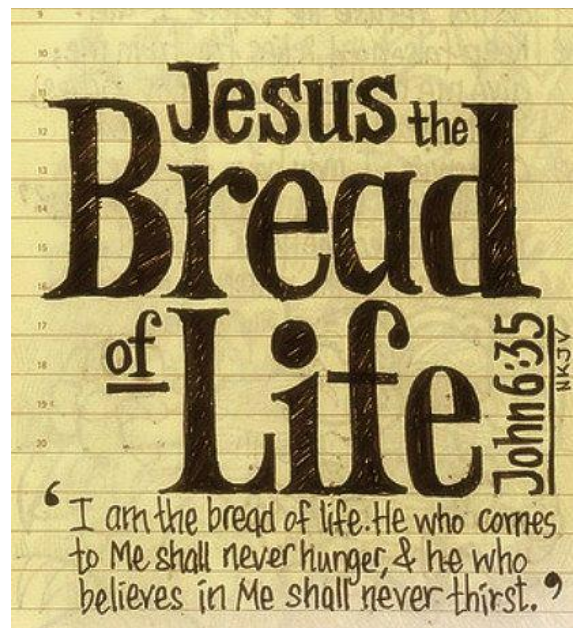 9
10
11
12
13
14
15
16
17
18
19
20
Jesus the
Bread
of Life
John 6:35
NKJV
‘I am the bread of life. He who comes
to Me shall never hunger, & he who
believes in Me shall never thirst.’